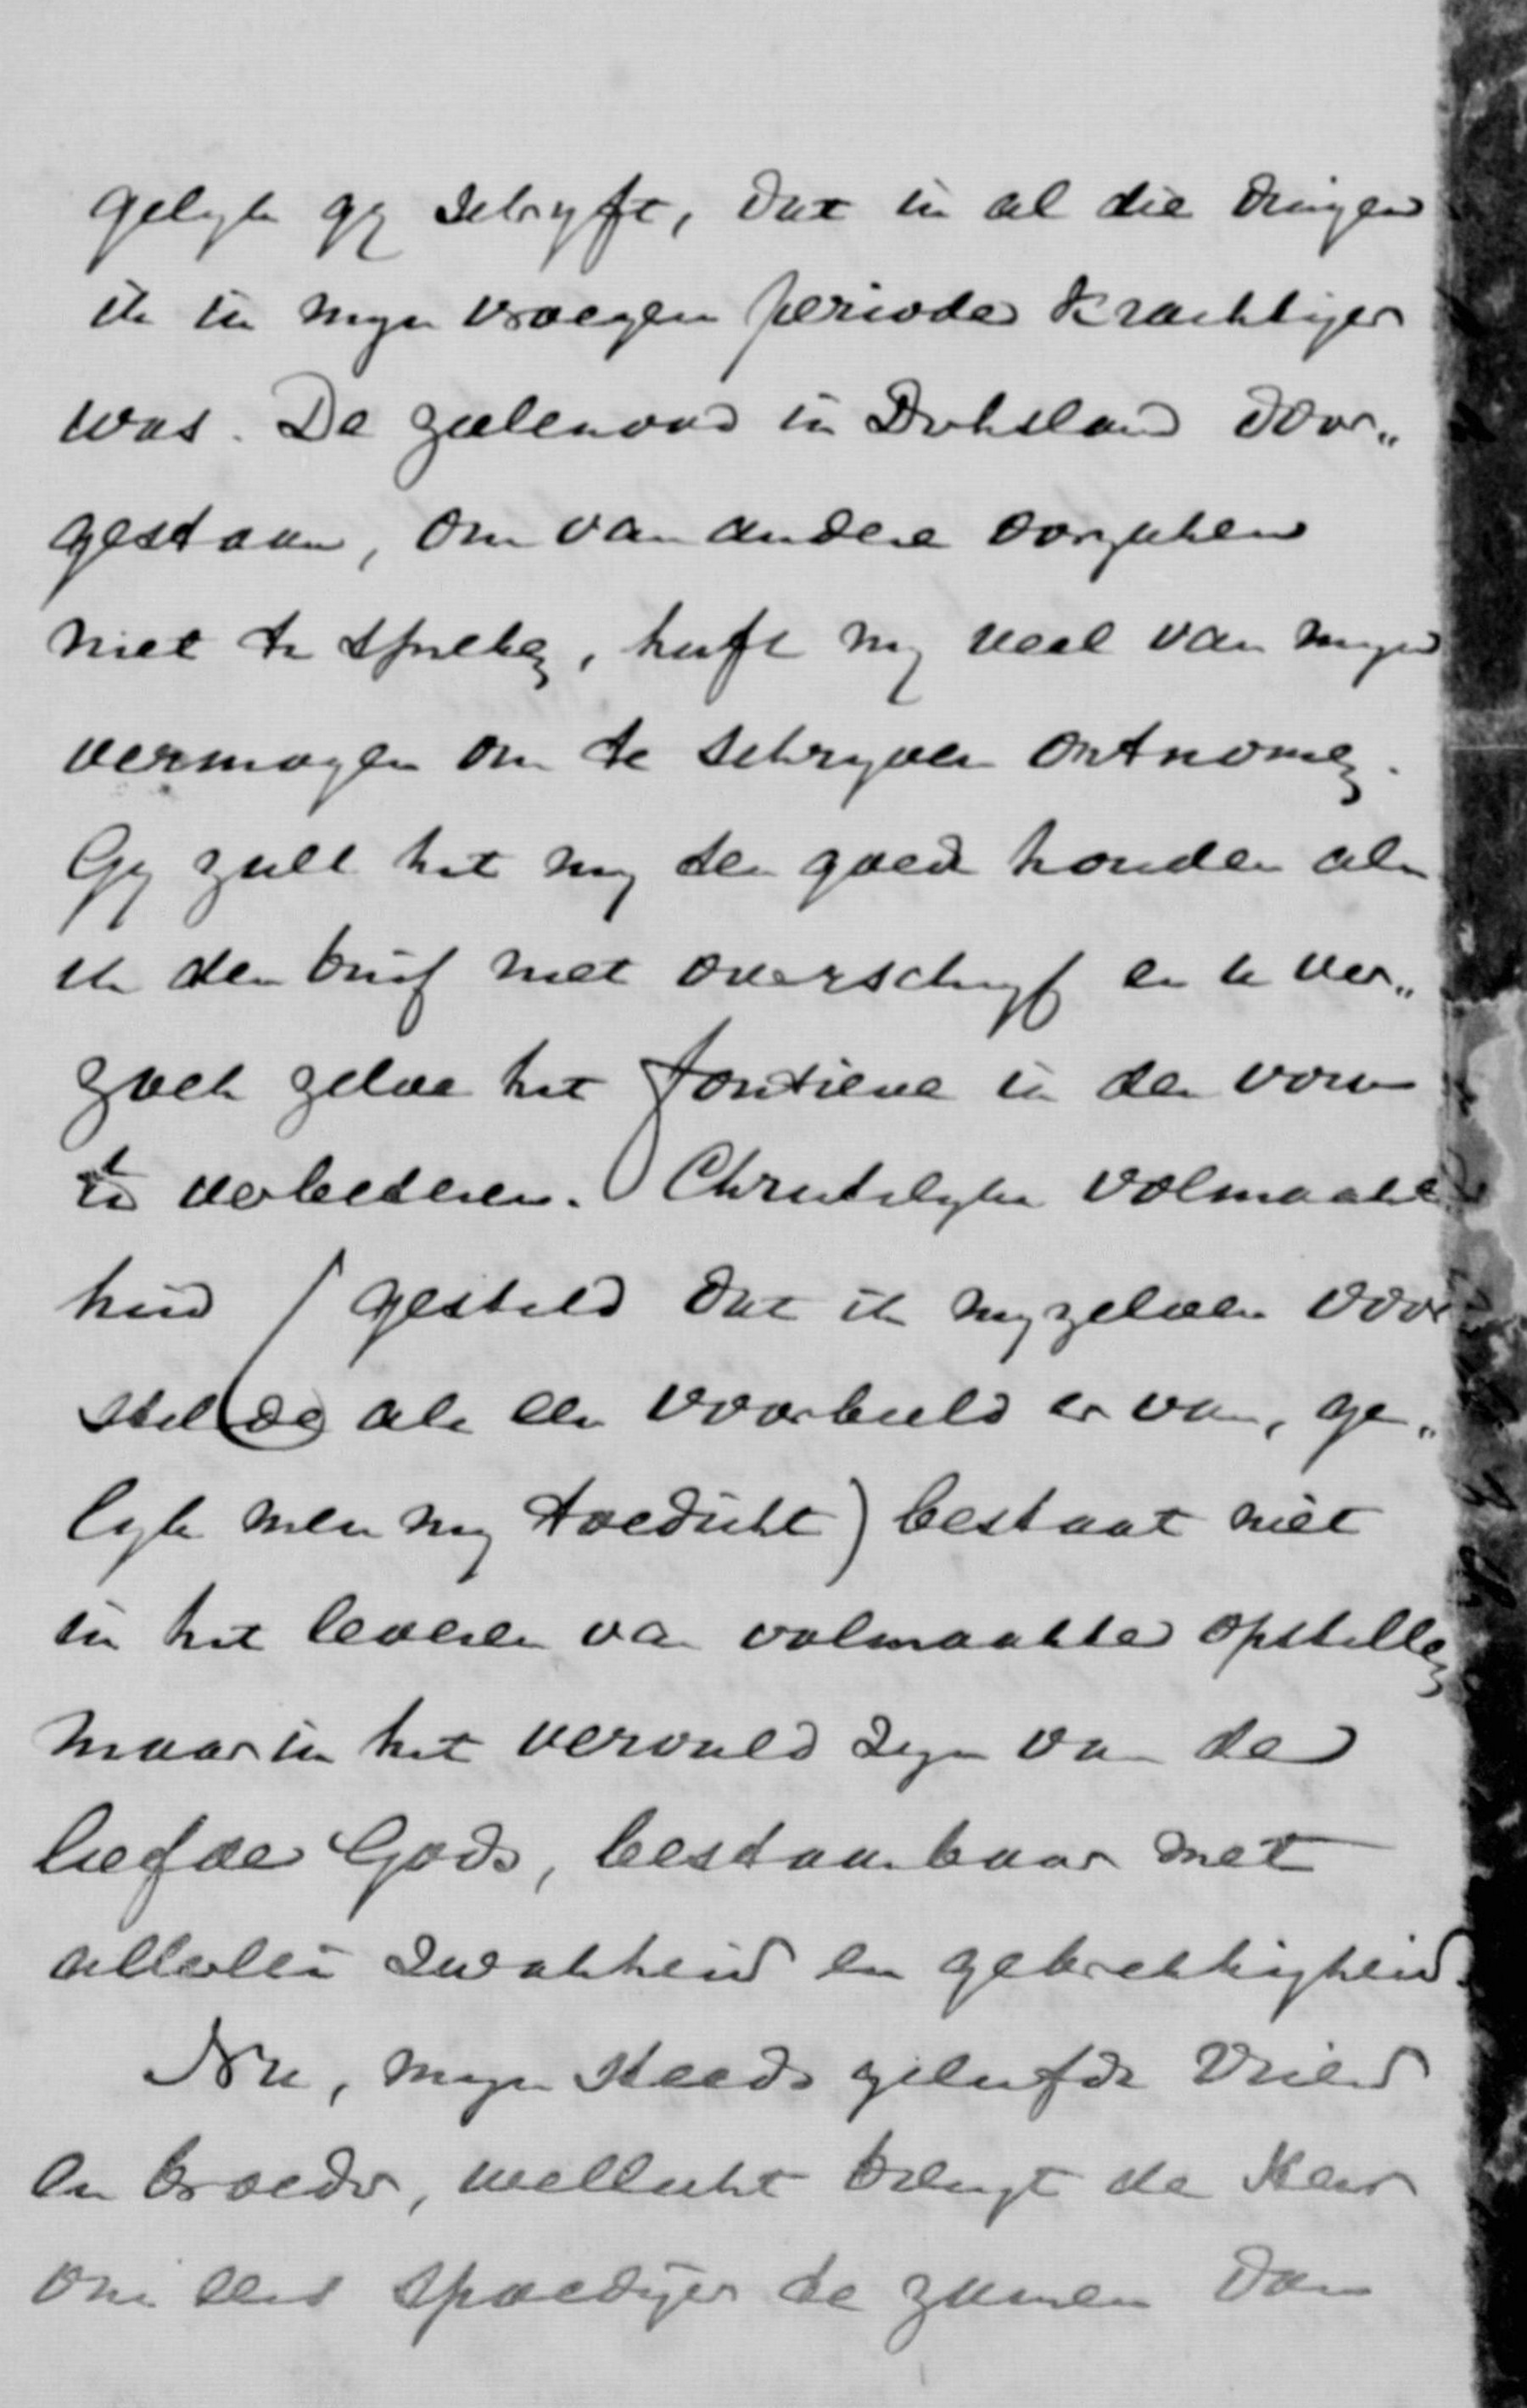 gelyk gy schryft, dat in al die dingen
ik in myn vroegen periode krachtiger
was. De zielenood in Duitsland door„
gestaan, om van andere oorzaken
niet te spreken, heeft my veel van myn
vermogen om te schryven ontnomen.
Gy zult het my ten goede houden als
ik den brief niet overschryf en te ver„
zoek gelve het foutieve in den vorm
te verbeteren. Christelyke volmaakt
heid (gesteld dat ik myzelven voor
stelde als een voorbeeld er van, ge„
lyk men my toedicht) bestaat niet
in het leveren van volmaakte opstellen
maar in het vervuld zyn van de
liefde Gods, bestaanbaar met
allerlei zwakheid en gebrekkigheid.
Nu, myn steeds geliefde vriend
en broeder, wellicht brengt de Heer
ons eens spoediger te zamen dan